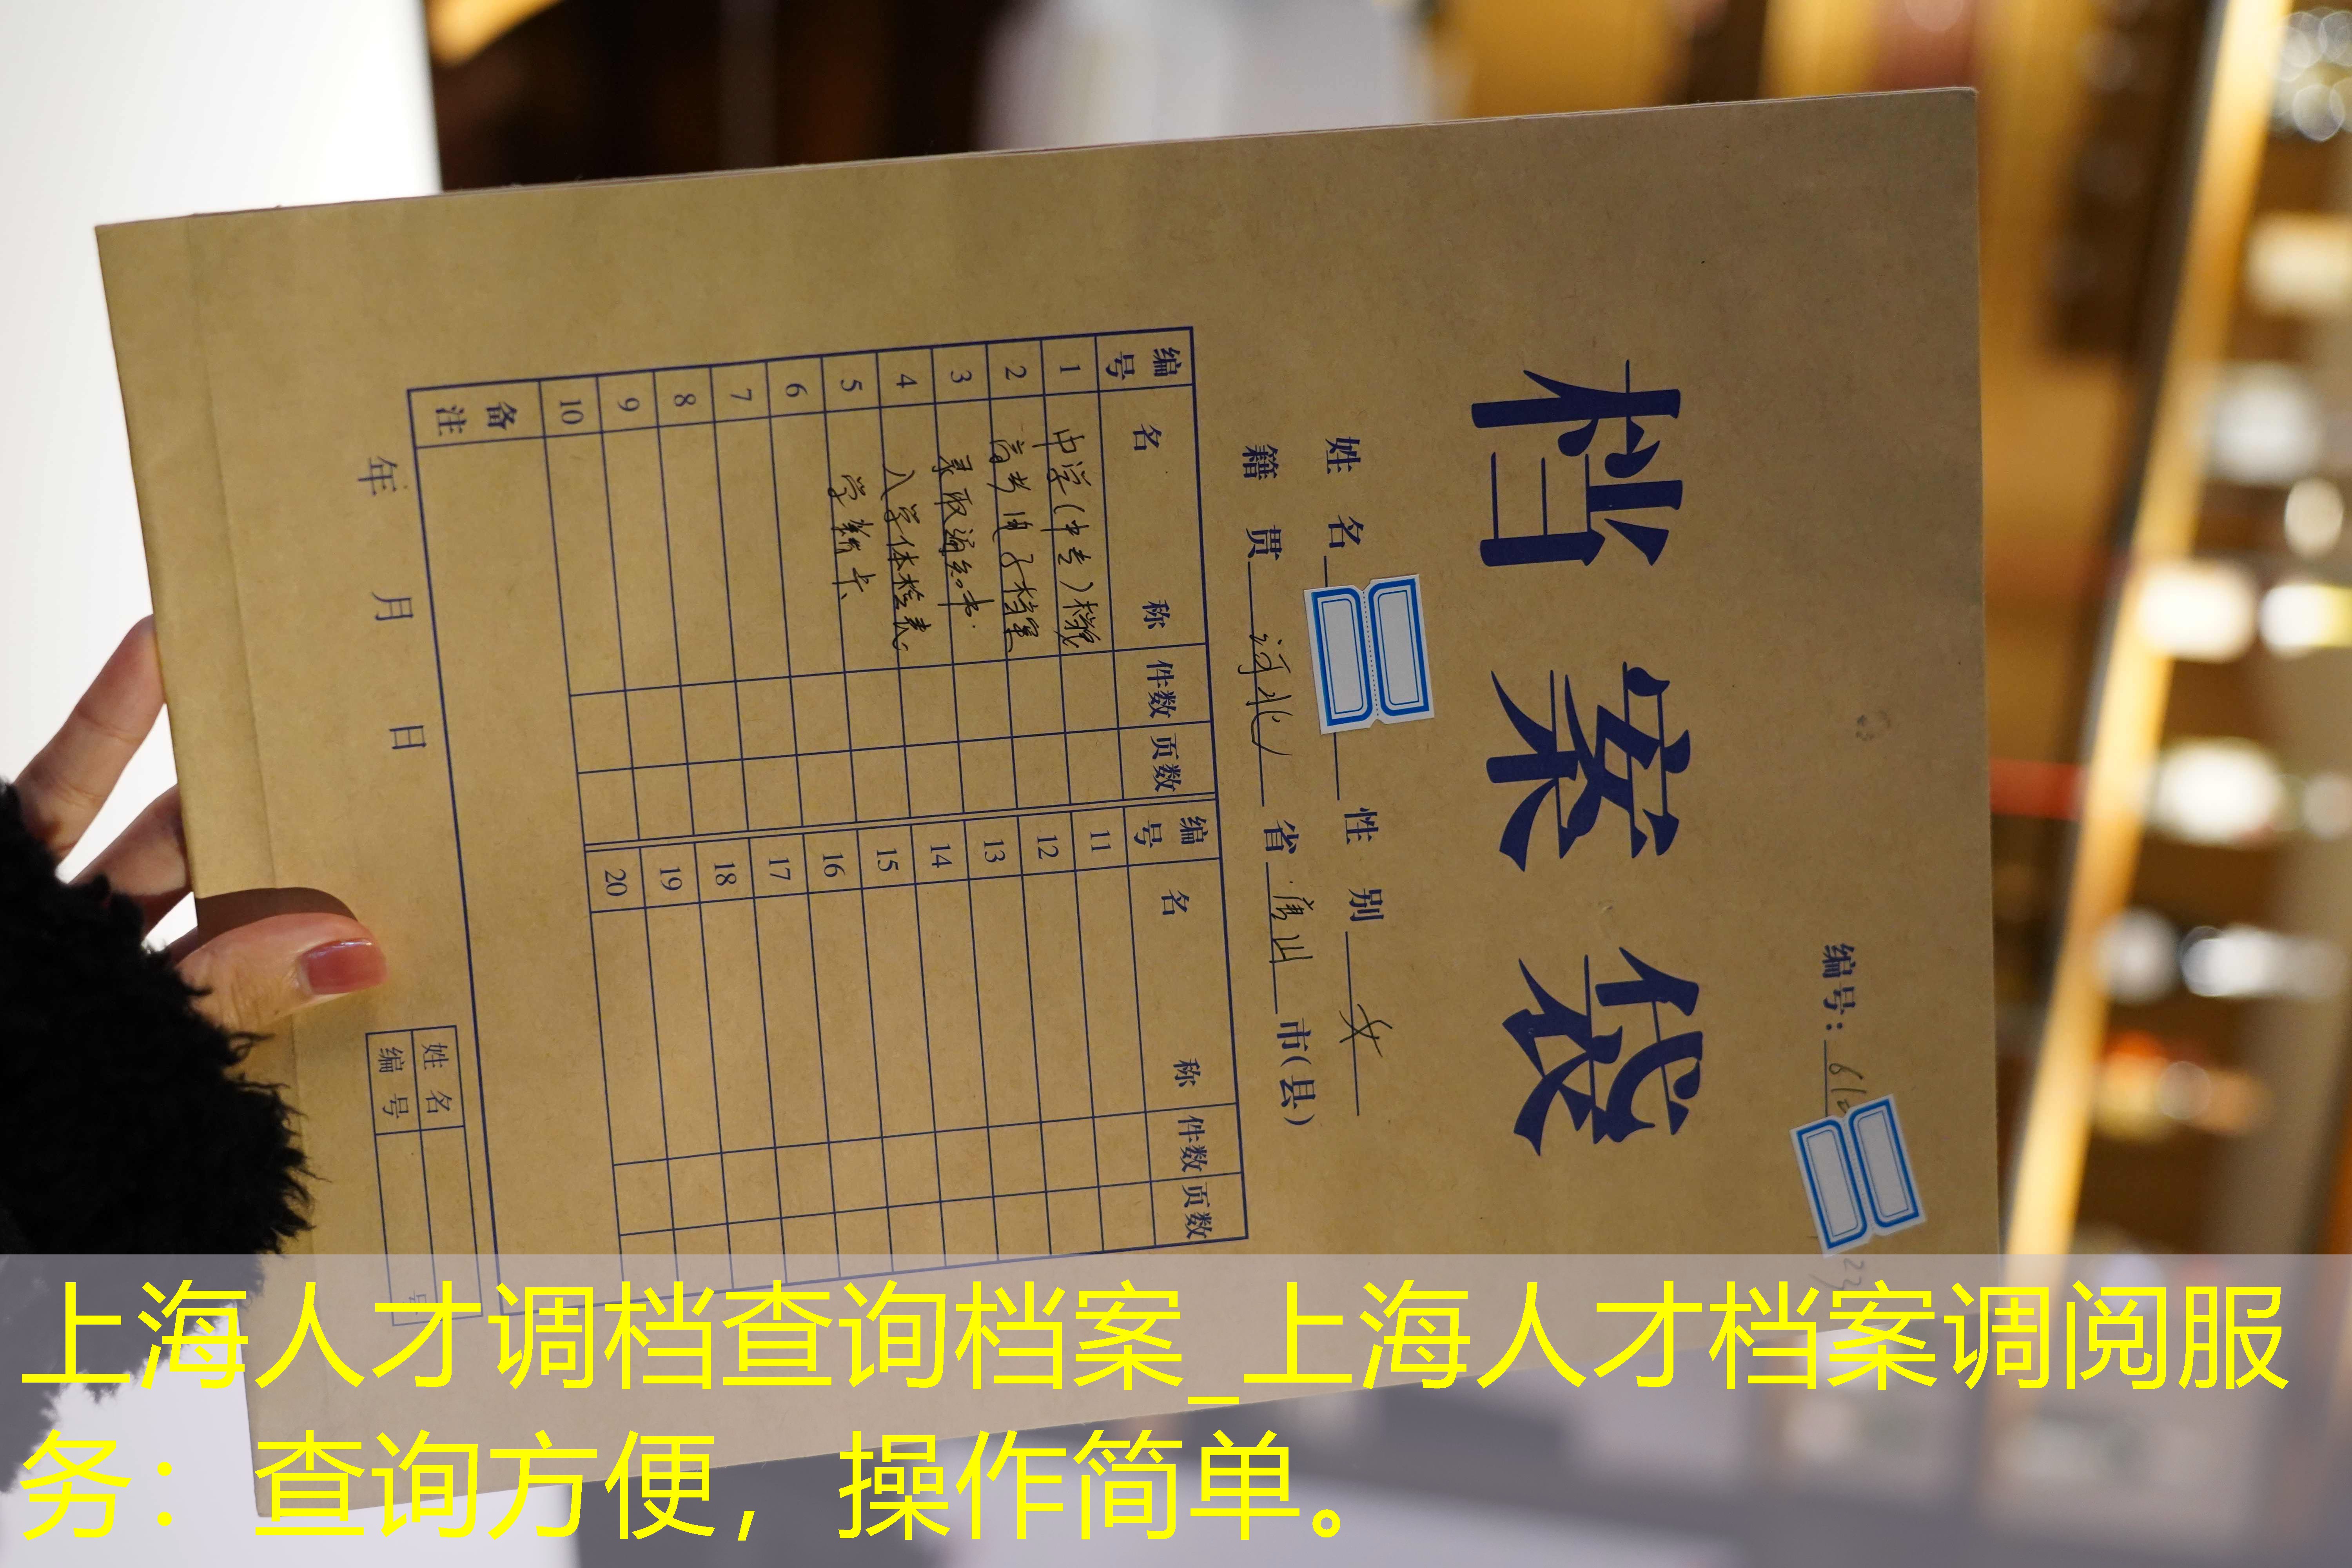 编号：
档案袋
姓名 性别 女
籍贯 河北 省 唐山 市(县)
编号 名称 件数 页数 编号 名称 件数 页数
1 中学(中专)档案 11
2 高考电子档案 12
3 录取通知书 13
4 入学体检表 14
5 学籍卡 15
6 16
7 17
8 18
9 19
10 20
备注
年 月 日
姓名
编号
上海人才调档查询档案_上海人才档案调阅服
务：查询方便，操作简单。